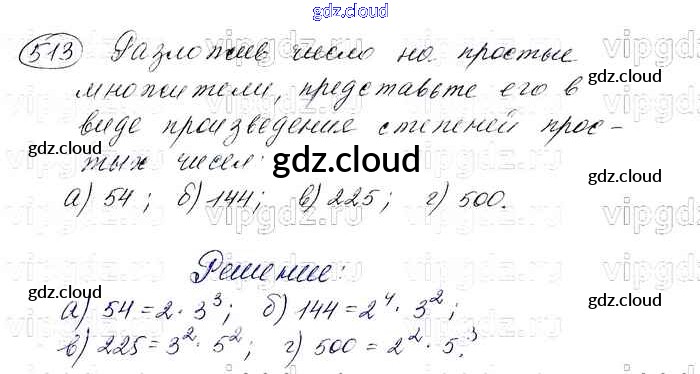 gdz.cloud
513 Разложив число на простые
множители, представьте его в
виде произведения степеней прос-
тых чисел:
gdz.cloud
gdz.cloud
gdz.cloud
gdz.cloud
gdz.cloud
а) 54; б) 144; в) 225; г) 500.
Решение:
gdz.cloud
gdz.cloud
а) 54 = 2 · 3³; б) 144 = 2⁴ · 3²;
в) 225 = 3² · 5²; г) 500 = 2² · 5³.